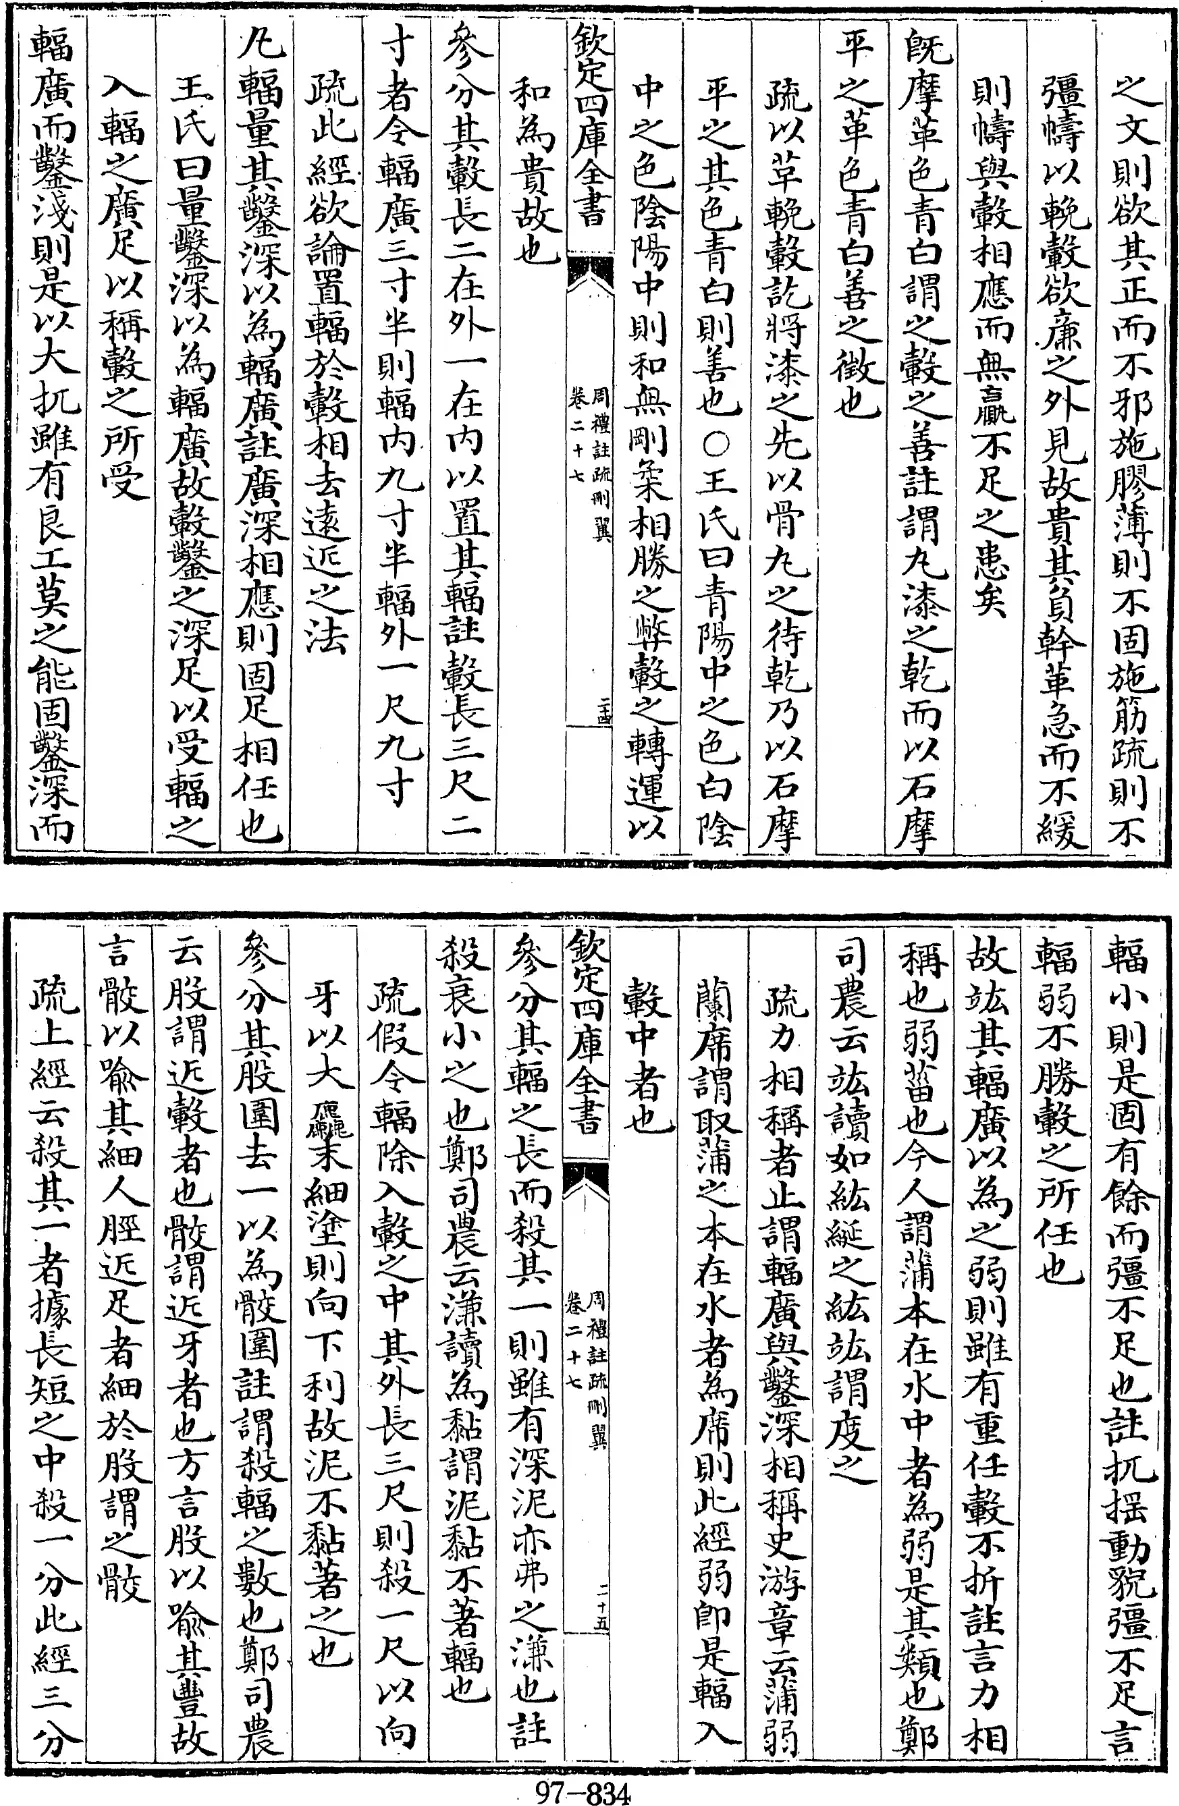 之文則欲其正而不邪施膠薄則不固施筋疏則不
彊幬以輓轂欲廉之外見故貴其負幹革急而不緩
則幬與轂相應而無贏不足之患矣
既摩革色青白謂之轂之善註謂丸漆之乾而以石摩
平之革色青白善之徵也
疏以革輓轂訖將漆之先以骨丸之待乾乃以石摩
平之其色青白則善也○王氏曰青陽中之色白陰
中之色陰陽中則和無剛柔相勝之弊轂之轉運以
欽定四庫全書
周禮註疏刪翼
卷二十七
二十四
和為貴故也
參分其轂長二在外一在內以置其輻註轂長三尺二
寸者令輻廣三寸半則輻內九寸半輻外一尺九寸
疏此經欲論置輻於轂相去遠近之法
凡輻量其鑿深以為輻廣註廣深相應則固足相任也
王氏曰量鑿深以為輻廣故轂鑿之深足以受輻之
入輻之廣足以稱轂之所受
輻廣而鑿淺則是以大扤雖有良工莫之能固鑿深而
輻小則是固有餘而彊不足也註扤揺動貌彊不足言
輻弱不勝轂之所任也
故竑其輻廣以為之弱則雖有重任轂不折註言力相
稱也弱菑也今人謂蒲本在水中者為弱是其類也鄭
司農云竑讀如紘綖之紘竑謂度之
疏力相稱者止謂輻廣與鑿深相稱史游章云蒲弱
蘭席謂取蒲之本在水者為席則此經弱卽是輻入
轂中者也
欽定四庫全書
周禮註疏刪翼
卷二十七
二十五
參分其輻之長而殺其一則雖有深泥亦弗之溓也註
殺衰小之也鄭司農云溓讀為黏謂泥黏不著輻也
疏假令輻除入轂之中其外長三尺則殺一尺以向
牙以大麤末細塗則向下利故泥不黏著之也
參分其股圍去一以為骹圍註謂殺輻之數也鄭司農
云股謂近轂者也骹謂近牙者也方言股以喩其豐故
言骹以喩其細人脛近足者細於股謂之骹
疏上經云殺其一者據長短之中殺一分此經三分
97-834